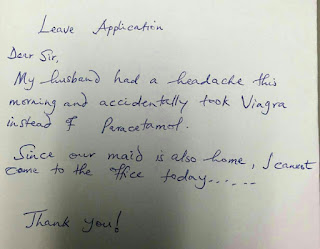 Leave Application
Dear Sir,
My husband had a headache this
morning and accidentally took Viagra
instead of Paracetamol.
Since our maid is also home, I cannot
come to the office today......
Thank you!